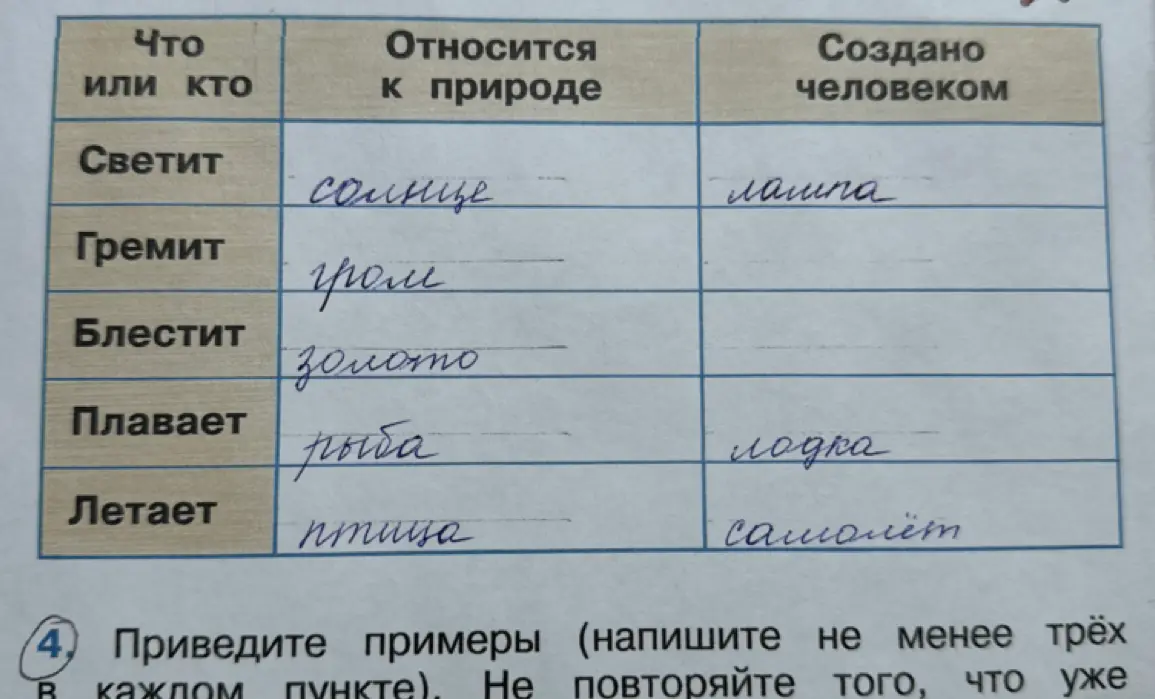 Что или кто
Относится к природе
Создано человеком
Светит солнце лампа
Гремит гром
Блестит золото
Плавает рыба лодка
Летает птица самолёт
4. Приведите примеры (напишите не менее трёх
в каждом пункте). Не повторяйте того, что уже